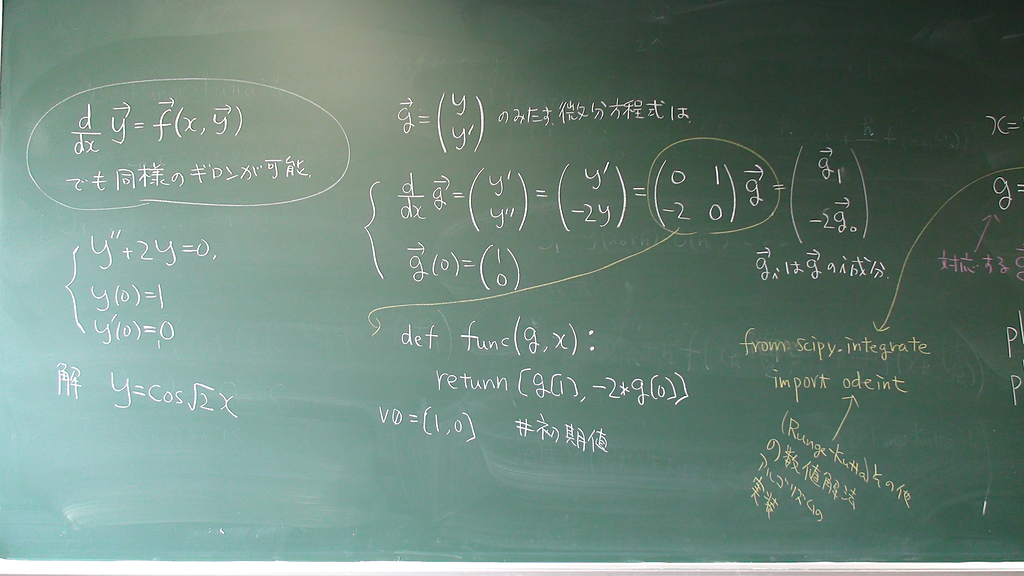 d/dx y⃗ = f⃗(x, y⃗)
でも同様のギロンが可能.
y''+2y=0,
y(0)=1
y'(0)=0
解 y=cos√2x
g⃗=(y y') のみたす微分方程式は
d/dx g⃗=(y' y'')=(y' -2y)=(0 1 -2 0)g⃗=(g⃗₁ -2g⃗₀)
g⃗(0)=(1 0)
g⃗ᵢはg⃗のi成分.
def func(g,x):
return [g[1], -2*g[0]]
v0=[1,0] #初期値
from scipy.integrate
import odeint
(Runge-Kutta)その他
の数値解法
x=
g=
対応する g⃗
pl
p